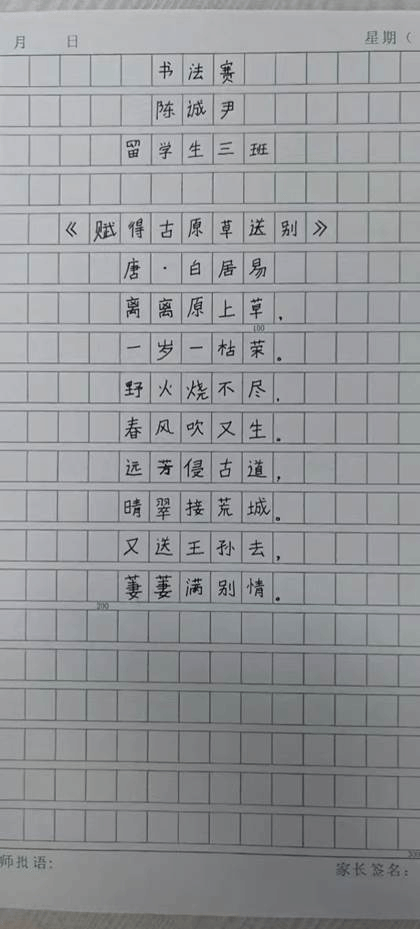 月 日 星期（
书法赛
陈诚尹
留学生三班
《赋得古原草送别》
唐·白居易
离离原上草，
100
一岁一枯荣。
野火烧不尽，
春风吹又生。
远芳侵古道，
晴翠接荒城。
又送王孙去，
萋萋满别情。
200
300
师批语: 家长签名: